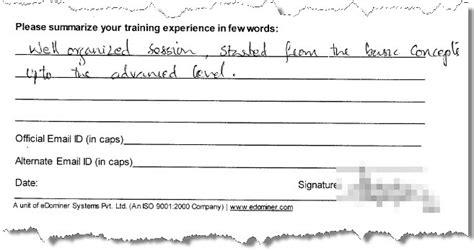 Please summarize your training experience in few words:
Well organized session, started from the basic concepts
upto the advanced level.
Official Email ID (in caps)
Alternate Email ID (in caps)
Date: Signature
A unit of eDominer Systems Pvt. Ltd. (An ISO 9001:2000 Company) | www.edominer.com